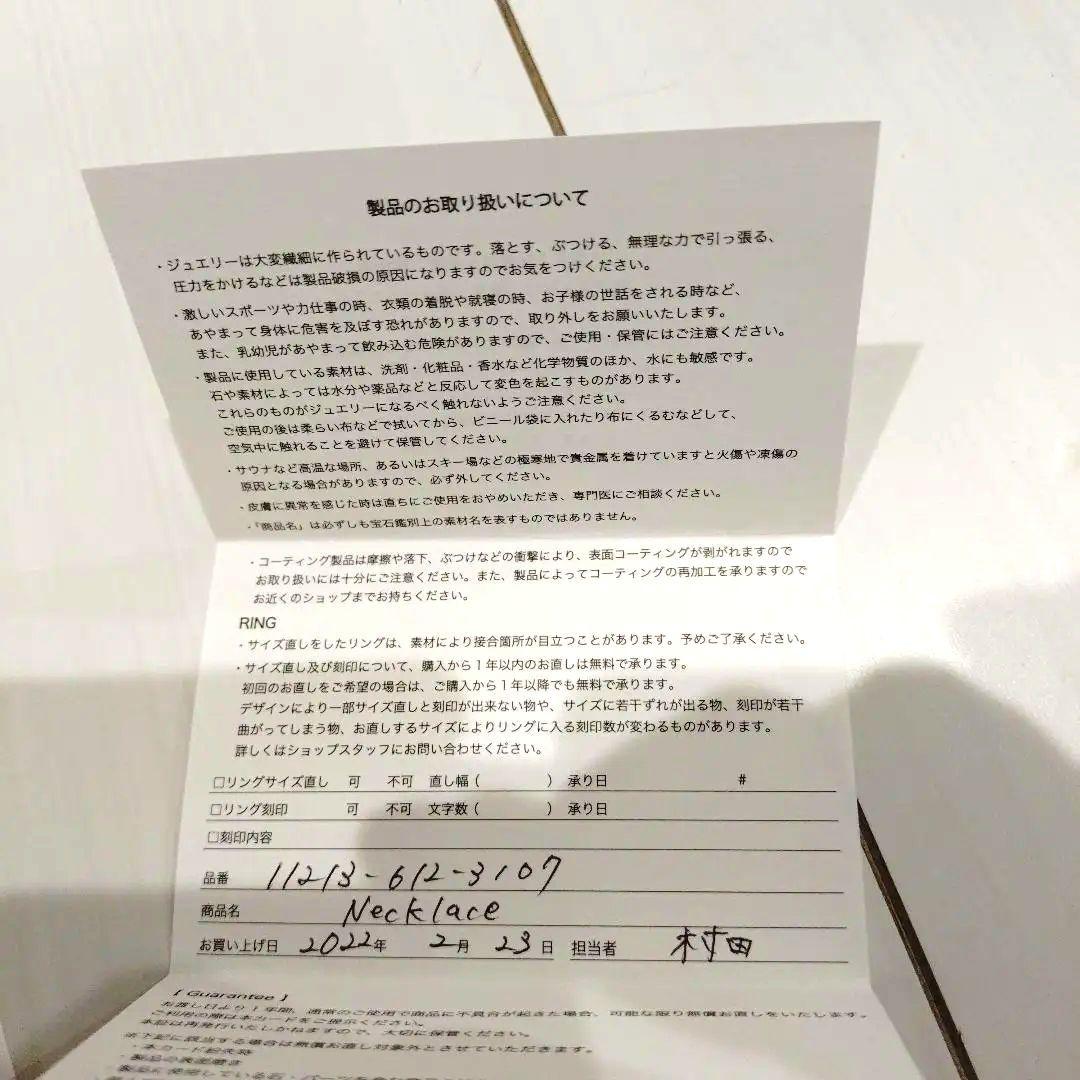 製品のお取り扱いについて
・ジュエリーは大変繊細に作られているものです。落とす、ぶつける、無理な力で引っ張る、
圧力をかけるなどは製品破損の原因になりますのでお気をつけください。
・激しいスポーツや力仕事の時、衣類の着脱や就寝の時、お子様の世話をされる時など、
あやまって身体に危害を及ぼす恐れがありますので、取り外しをお願いいたします。
また、乳幼児があやまって飲み込む危険がありますので、ご使用・保管にはご注意ください。
・製品に使用している素材は、洗剤・化粧品・香水など化学物質のほか、水にも敏感です。
石や素材によっては水分や薬品などと反応して変色を起こすものがあります。
これらのものがジュエリーになるべく触れないようご注意ください。
ご使用の後は柔らい布などで拭いてから、ビニール袋に入れたり布にくるむなどして、
空気中に触れることを避けて保管してください。
・サウナなど高温な場所、あるいはスキー場などの極寒地で貴金属を着けていますと火傷や凍傷の
原因となる場合がありますので、必ず外してください。
・皮膚に異常を感じた時は直ちにご使用をおやめいただき、専門医にご相談ください。
・「商品名」は必ずしも宝石鑑別上の素材名を表すものではありません。
・コーティング製品は摩擦や落下、ぶつけなどの衝撃により、表面コーティングが剥がれますので
お取り扱いには十分にご注意ください。また、製品によってコーティングの再加工を承りますので
お近くのショップまでお持ちください。
RING
・サイズ直しをしたリングは、素材により接合箇所が目立つことがあります。予めご了承ください。
・サイズ直し及び刻印について、購入から1年以内のお直しは無料で承ります。
初回のお直しをご希望の場合は、ご購入から1年以降でも無料で承ります。
デザインにより一部サイズ直しと刻印が出来ない物や、サイズに若干ずれが出る物、刻印が若干
曲がってしまう物、お直しするサイズによりリングに入る刻印数が変わるものがあります。
詳しくはショップスタッフにお問い合わせください。
□リングサイズ直し 可 不可 直し幅( ) 承り日 #
□リング刻印 可 不可 文字数( ) 承り日
□刻印内容
品番 11213-612-3107
商品名 Necklace
お買い上げ日 2022年 2月 23日 担当者 村田
【 Guarantee 】
お渡し日より1年間、通常のご使用で商品に不具合が起きた場合、可能な限り無償お直しをいたします。
ご利用の際は本カードをご提示ください。
本証は再発行いたしかねますので、大切に保管ください。
※下記に該当する場合は無償お直し対象外とさせていただきます。
・本カード紛失時
・製品の表面磨き